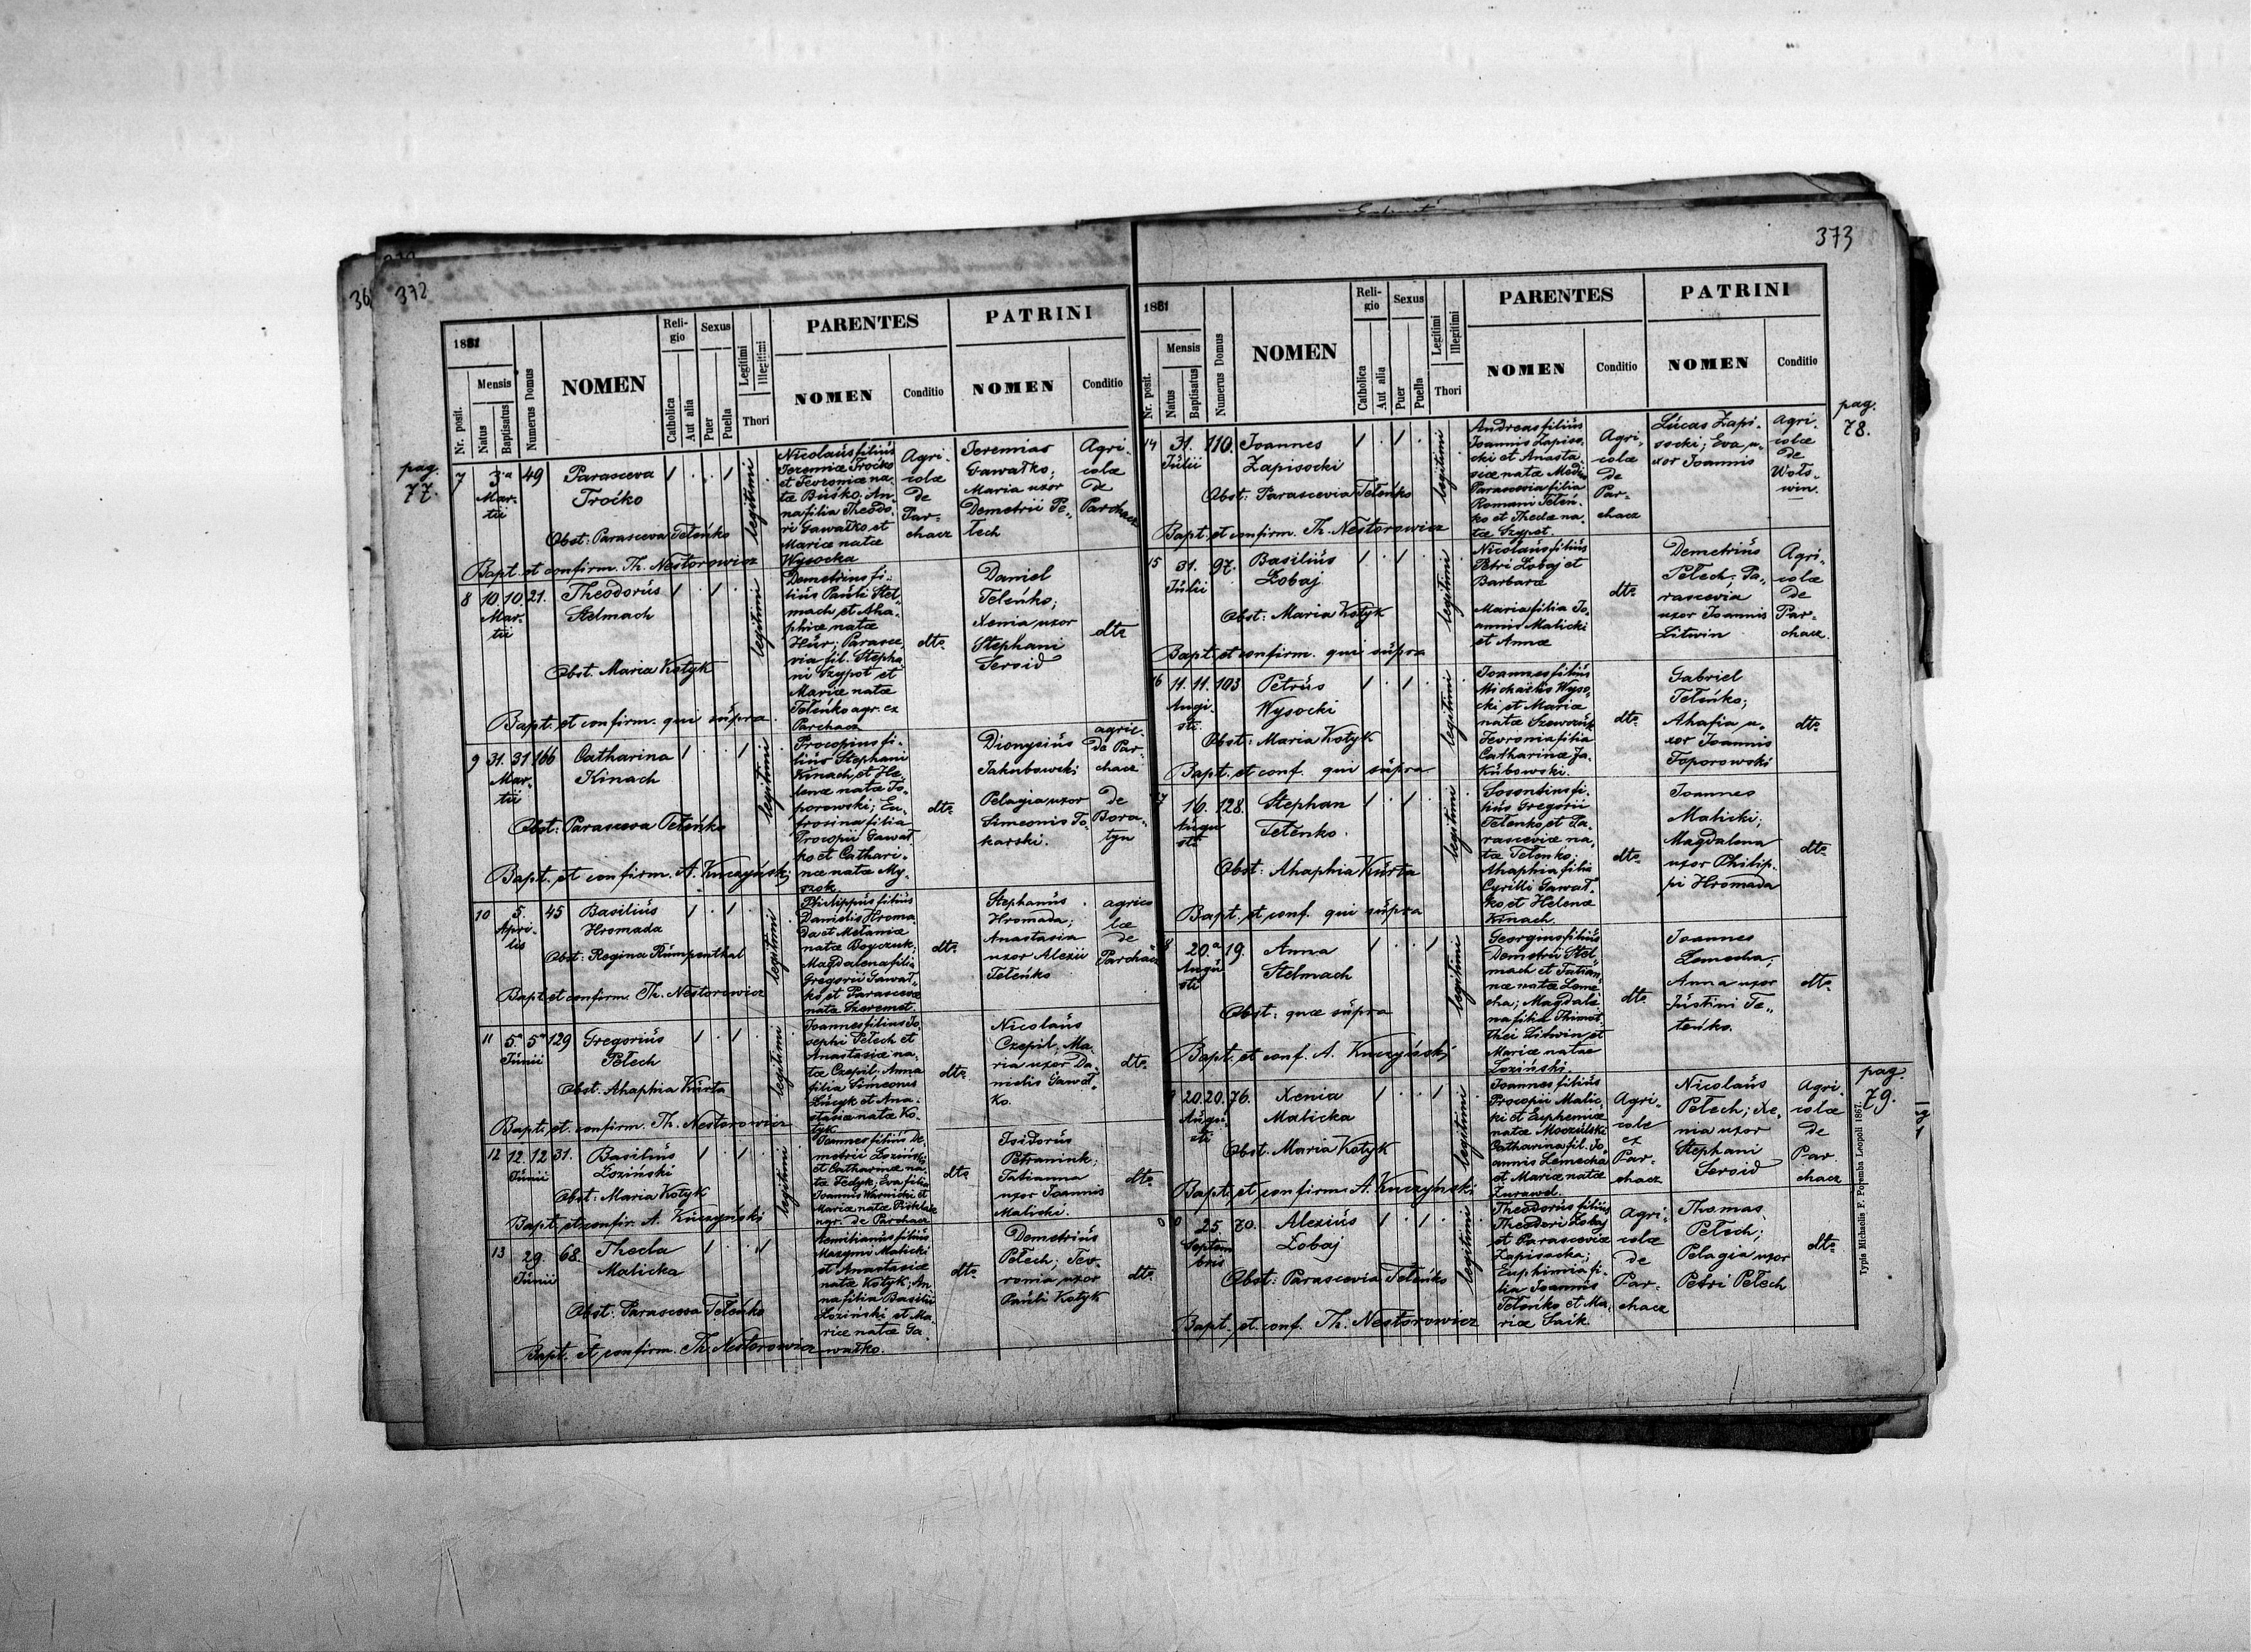 372
36
1881
Nr. posit.
Mensis
Natus
Baptisatus
Numerus Domus
NOMEN
Reli-
gio
Catholica
Aut alia
Sexus
Puer
Puella
Legitimi
Illegitimi
Thori
PARENTES
NOMEN
Conditio
PATRINI
NOMEN
Conditio
pag.
77.
7
3a
Mar-
tii
49
Parasceva
Troćko
legitimi
Obst: Parasceva Teleńko
Bapt. et confirm. Th. Nestorowicz
Nicolaus filius
Jeremiæ Troćko
et Fevroniæ na-
tæ Buśko; An-
na filia Theodo-
ri Gawałko et
Mariæ natæ
Wysocka
Agri-
colæ
de
Par-
chacz
Jeremias
Gawałko;
Maria uxor
Demetrii Pe-
łech
Agri-
colæ
de
Parchacz
8
10. 10.
Mar-
tii
21.
Theodorus
Stelmach
legitimi
Obst. Maria Kotyk
Bapt. et confirm. qui supra.
Demetrius fi-
lius Pauli Stel-
mach et Aha-
phiæ natæ
Hur; Parasce-
via fil. Stepha-
ni Szypot et
Mariæ natæ
Teleńko agr. ex
Parchacz
dto
Daniel
Teleńko;
Xenia uxor
Stephani
Seroid
dto
9
31. 31
Mar-
tii
166
Catharina
Kinach
legitimi
Obst: Parasceva Teleńko
Bapt. et confirm. A. Kuczyński
Procopius fi-
lius Stephani
Kinach et He-
lenæ natæ To-
porowski; Eu-
frosina filia
Procopii Gawał-
ko et Cathari-
næ natæ My-
szok.
dto
Dionysius
Jakubowski
Pelagia uxor
Simeonis To-
karski.
agric.
de Par-
chacz
de
Bora-
tyn
10
5.
Apri-
lis
45
Basilius
Hromada
legitimi
Obst: Regina Rumpenthal
Bapt. et confirm. Th. Nestorowicz
Philippus filius
Danielis Hroma-
da et Melaniæ
natæ Boyczuk;
Magdalena filia
Gregorii Gawał-
ko et Parascevæ
natæ Szeremet.
dto
Stephanus
Hromada;
Anastasia
uxor Alexii
Teleńko
agrico
læ
de
Parchacz
11
5. 5a
Junii
129
Gregorius
Pełech
legitimi
Obst: Ahaphia Kurta
Bapt. et confirm. Th. Nestorowicz
Joannes filius Jo-
sephi Pełech et
Anastasiæ na-
tæ Czepil; Anna
filia Simeonis
Lucyk et Ana-
stasiæ natæ Ko-
tyk
dto
Nicolaus
Czepil; Ma-
ria uxor Da-
nielis Gawał-
ko.
dto
12
12. 12
Junii
31.
Basilius
Łoziński
legitimi
Obst: Maria Kotyk
Bapt. et confir. A. Kuczyński
Joannes filius De-
metrii Łoziński
et Catharinæ na-
tæ Fedyk; Eva filia
Joannis Warnicki et
Mariæ natæ
agr. de Parchacz
dto
Isidorus
Petraniuk;
Tatianna
uxor Joannis
Malicki.
dto
13
29.
Junii
68.
Thecla
Malicka
Obst: Parasceva Teleńko
Bapt. et confirm. Th. Nestorowicz
Aemilianus filius
Maxymi Malicki
et Anastasiæ
natæ Kotyk; An-
na filia Basilii
Łoziński et Ma-
riæ natæ Ga-
wałko.
dto
Demetrius
Pełech; Fev-
ronia uxor
Pauli Kotyk
dto
373
1881
Nr. posit.
Mensis
Natus
Baptisatus
Numerus Domus
NOMEN
Reli-
gio
Catholica
Aut alia
Sexus
Puer
Puella
Legitimi
Illegitimi
Thori
PARENTES
NOMEN
Conditio
PATRINI
NOMEN
Conditio
pag.
78.
14
31.
Julii
110.
Joannes
Zapisocki
legitimi
Obst: Parascevia Teleńko
Bapt. et confirm. Th. Nestorowicz
Andreas filius
Joannis Zapiso-
cki et Anasta-
siæ natæ
Parascevia filia
Romani Teleń-
ko et Theclæ na-
tæ Szypot.
Agri-
colæ
de
Par-
chacz
Lucas Zapi-
socki; Eva u-
xor Joannis
Agri-
colæ
de
Wołs-
win.
15
31.
Julii
97.
Basilius
Łobaj
legitimi
Obst: Maria Kotyk
Bapt. et confirm. qui supra
Nicolaus filius
Petri Łobaj et
Barbaræ
Maria filia Jo-
annis Malicki
et Annæ
dto
Demetrius
Pełech; Pa-
rascevia
uxor Joannis
Litwin
Agri-
colæ
de
Par-
chacz.
16
11. 11.
Augu-
sti
103
Petrus
Wysocki
legitimi
Obst: Maria Kotyk
Bapt. et conf. qui supra
Joannes filius
Michaelis Wyso-
cki et Mariæ
natæ Szewczuk
Fevronia filia
Catharinæ Ja-
kubowski.
dto
Gabriel
Teleńko;
Ahafia u-
xor Joannis
Toporowski
dto
7
16.
Augu
sti
128.
Stephan
Teleńko.
legitimi
Obst: Ahaphia Kurta
Bapt. et conf. qui supra
Sosontius fi-
lius Gregorii
Teleńko et Pa-
rasceviæ na-
tæ Teleńko;
Ahaphia filia
Cyrilli Gawał-
ko et Helenæ
Kinach.
dto
Joannes
Malicki;
Magdalena
uxor Philip-
pi Hromada
dto
8
20.a
Augu
sti
19.
Anna
Stelmach
legitimi
Obst: quæ supra
Bapt. et conf. A. Kuczyński
Georgius filius
Demetrii Stel-
mach et Tatian-
næ natæ Leme-
cha; Magdale-
na filia Thimot-
thei Litwin et
Mariæ natæ
Łoziński.
dto
Joannes
Lemecha;
Anna uxor
Justini Te-
leńko.
dto
pag.
79.
9
20. 20.
Augu-
sti
76.
Xenia
Malicka
legitimi
Obst: Maria Kotyk
Bapt. et confirm. A. Kuczyński
Joannes filius
Procopii Malic-
ki et Euphemiæ
natæ
Catharina fil. Jo-
annis Lemecha
et Mariæ natæ
Zurawel.
Agri-
colæ
ex
Par-
chacz
Nicolaus
Pełech; Xe-
nia uxor
Stephani
Seroid
Agri-
colæ
de
Par
chacz
0
25
Septem
bris
70.
Alexius
Łobaj
legitimi
Obst: Parascevia Teleńko
Bapt. et conf. Th. Nestorowicz
Theodorus filius
Theodori Łobaj
et Parasceviæ
Zapisocka;
Euphimia fi-
lia Joannis
Teleńko et Ma-
riæ Saik
Agri-
colæ
de
Par-
chacz
Thomas
Pełech;
Pelagia uxor
Petri Pełech
dto
Typis Michaelis F. Poremba Leopoli 1867.